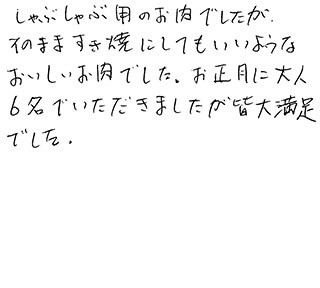 しゃぶしゃぶ用のお肉でしたが、
そのまますき焼にしてもいいような
おいしいお肉でした。お正月に大人
6名でいただきましたが皆大満足
でした。